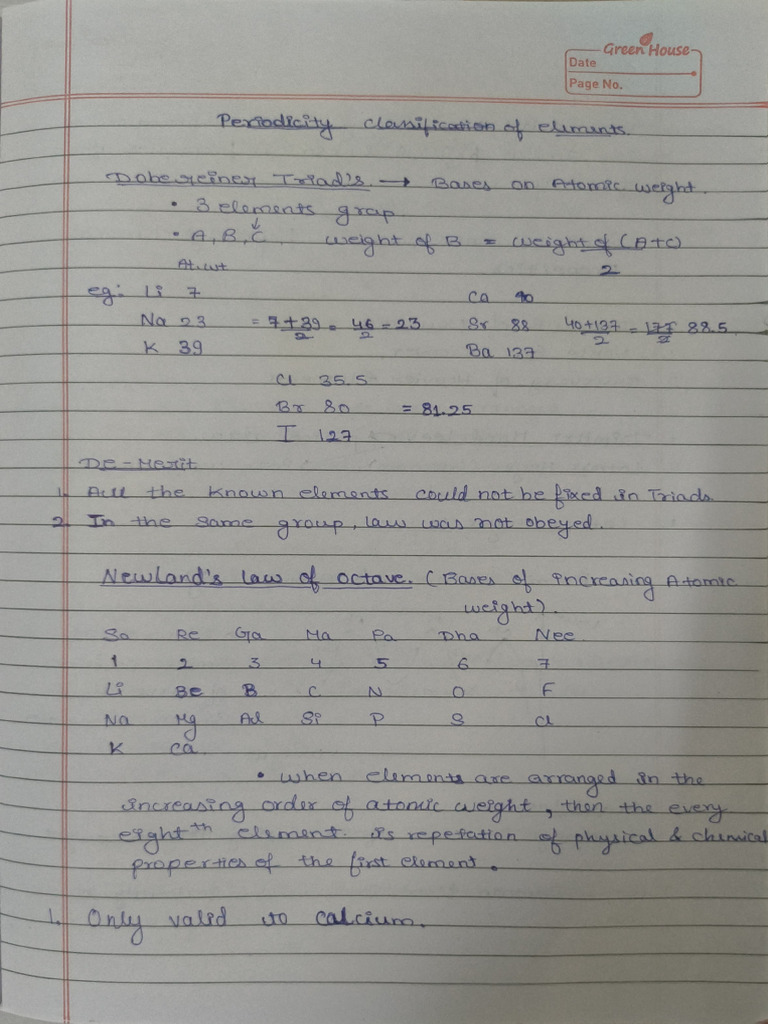 Green House
Date
Page No.
Periodicity classification of elements.
Dobereiner Triad's. → Bases on Atomic weight.
• 3 elements grap
• A, B, C weight of B = weight of (A+C)
2
At.wt
eg: Li 7 Ca 40
Na 23 = 7+39/2 = 46/2 = 23 Sr 88 40+137/2 = 177/2 88.5
K 39 Ba 137
Cl 35.5
Br 80 = 81.25
I 127
De-Merit
1. All the known elements could not be fixed in Triads
2. In the same group, law was not obeyed.
Newland's law of octave. (Bases of increasing Atomic
weight).
Sa Re Ga Ma Pa Dha Nee
1 2 3 4 5 6 7
Li Be B C N O F
Na Mg Al Si P S Cl
K Ca
• when elements are arranged in the
increasing order of atomic weight, then the every
eight th element is repetation of physical & chemical
properties of the first element.
1. Only valid to calcium.